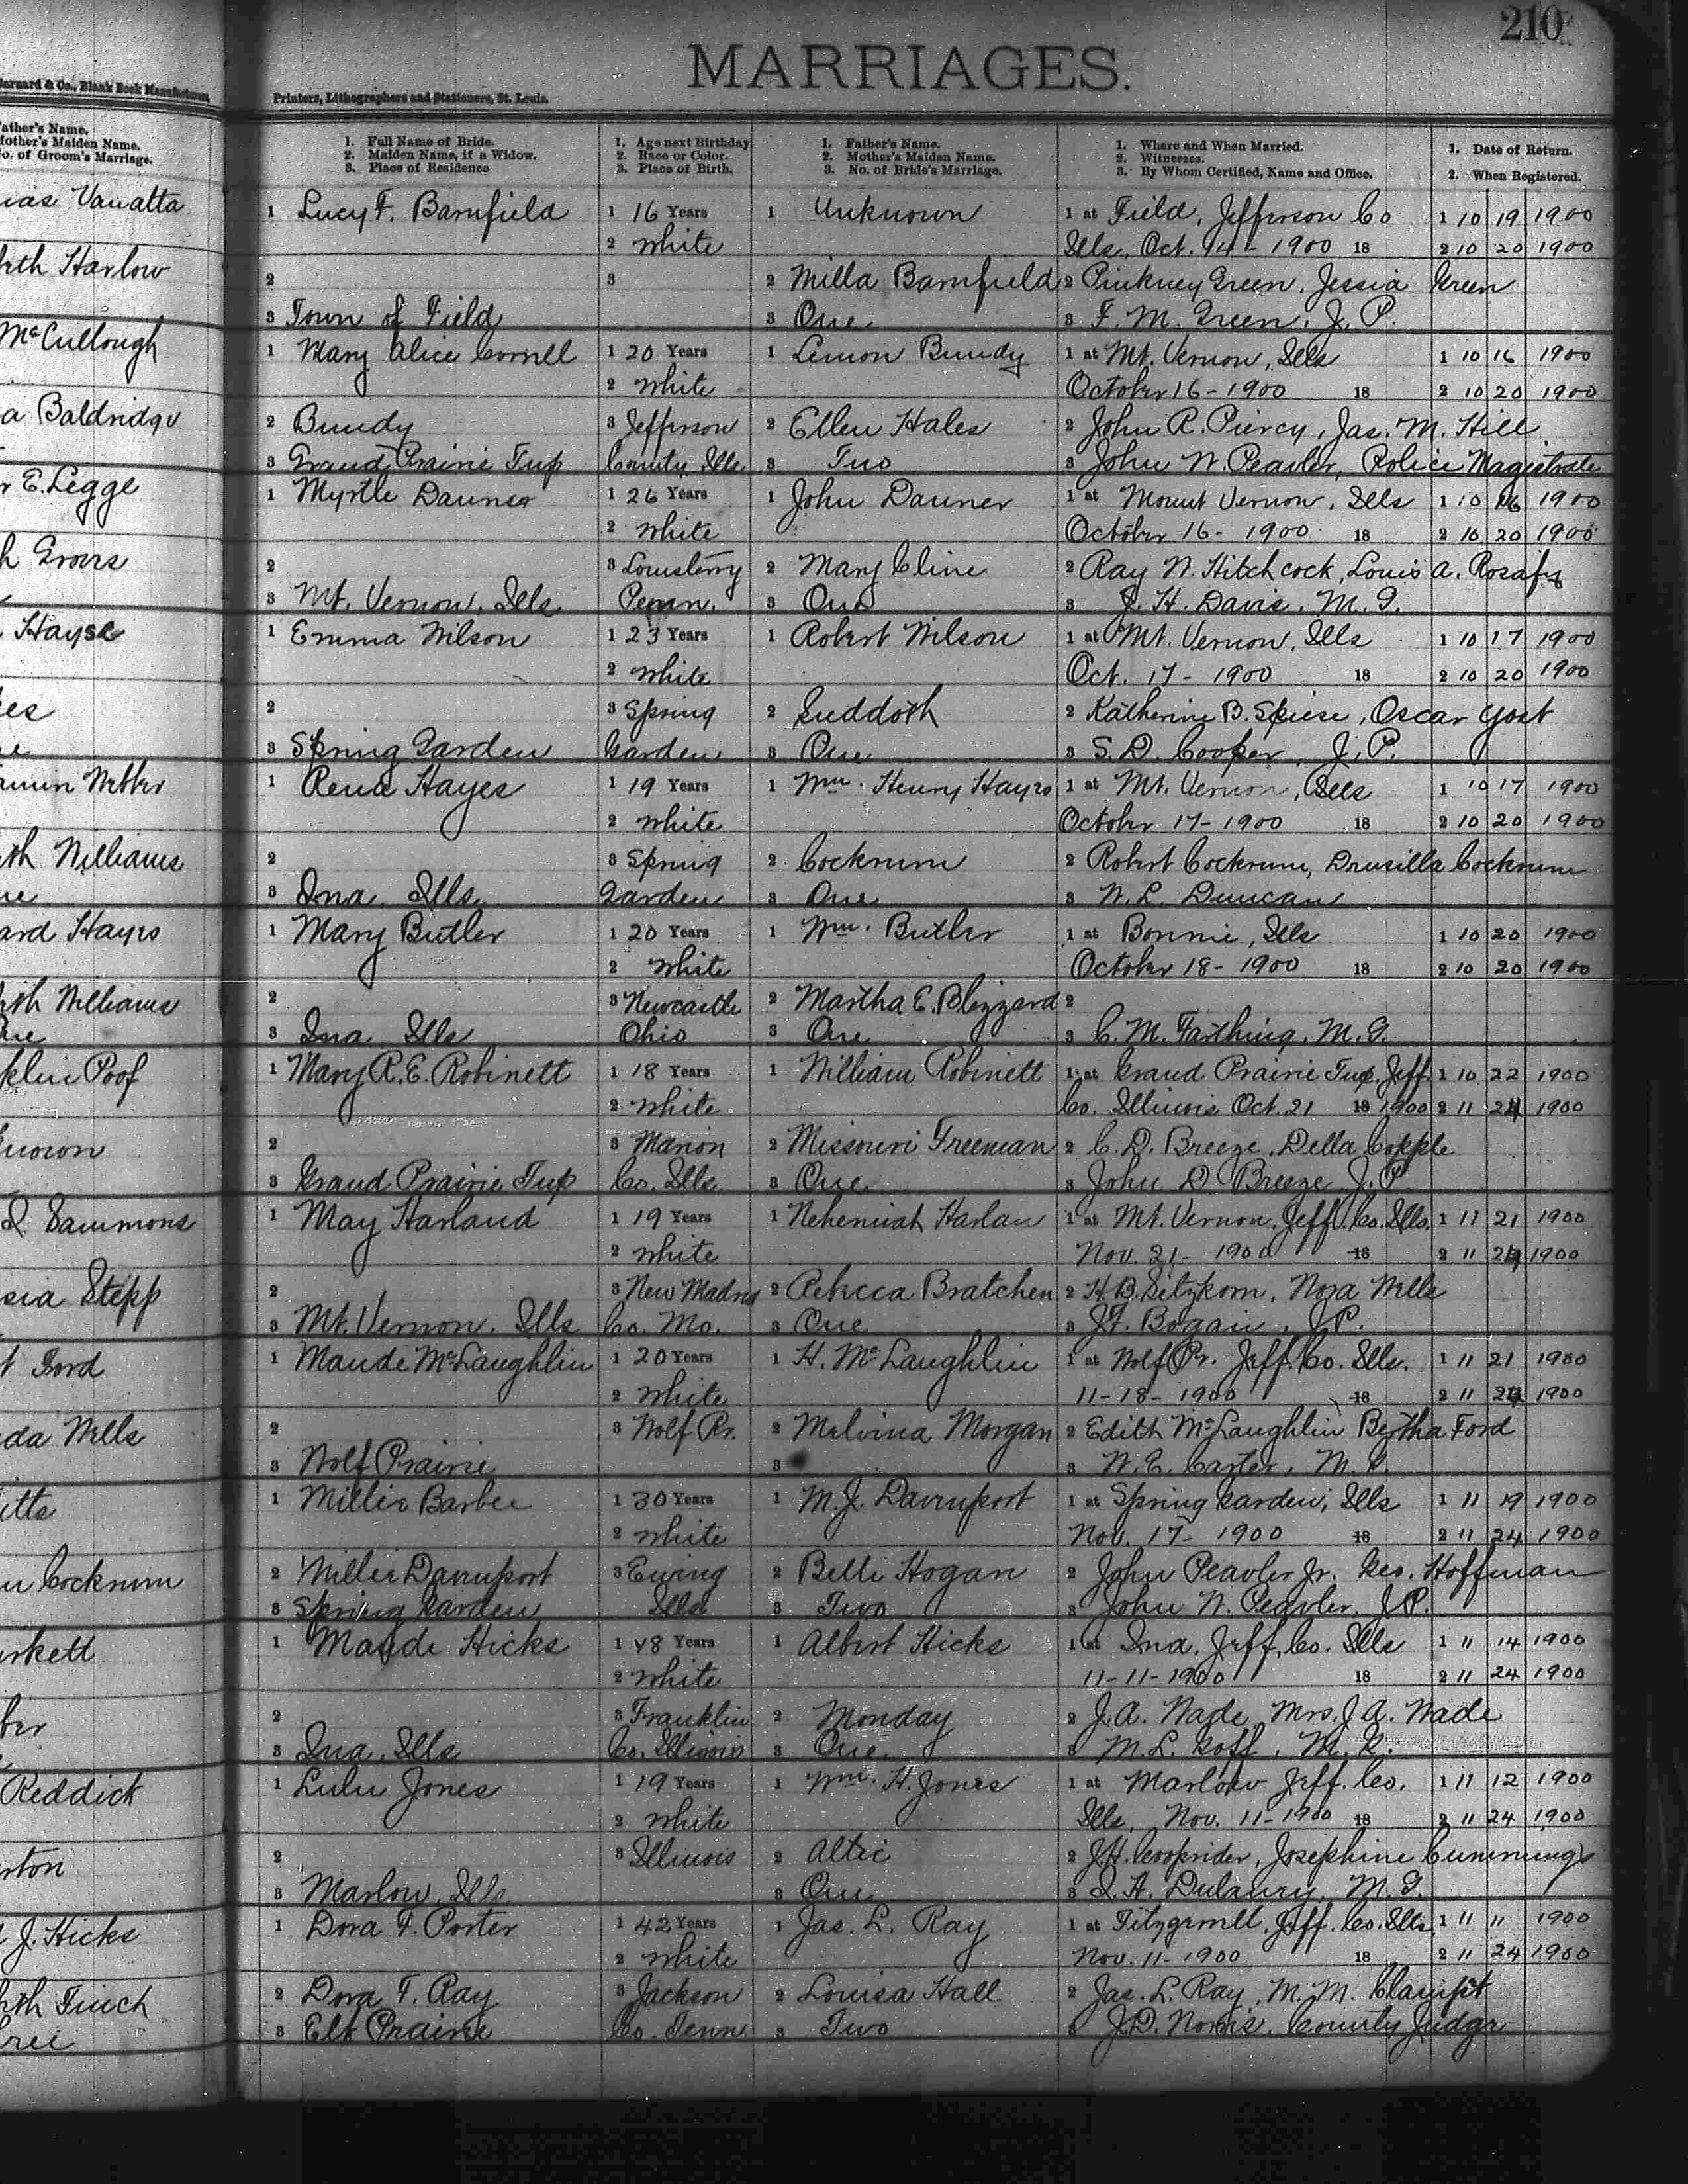 210
MARRIAGES.
Barnard & Co., Blank Book Manufacturers,
Printers, Lithographers and Stationers, St. Louis.
Father's Name.
Mother's Maiden Name.
No. of Groom's Marriage.
1. Full Name of Bride.
2. Maiden Name, if a Widow.
3. Place of Residence
1. Age next Birthday
2. Race or Color.
3. Place of Birth.
1. Father's Name.
2. Mother's Maiden Name.
3. No. of Bride's Marriage.
1. Where and When Married.
2. Witnesses.
3. By Whom Certified, Name and Office.
1. Date of Return.
2. When Registered.
ias Vanatta
1 Lucy F. Barnfield 1 16 Years 1 Unknown 1 at Field, Jefferson Co 1 10 19 1900
2 White Ills, Oct. 14 - 1900 18 2 10 20 1900
Harlow
2 3 2 Milla Barnfield 2 Pinkney Green, Jessia Green
3 Town of Field 3 One 3 F. M. Green, J. P.
McCullough
1 Mary Alice Cornell 1 20 Years 1 Lemon Bundy 1 at Mt. Vernon, Ills 1 10 16 1900
2 White October 16 - 1900 18 2 10 20 1900
a Baldridge
2 Bundy 3 Jefferson 2 Ellen Hales 2 John R. Piercy, Jas. M. Hill
3 Grand Prairie Twp County, Ills 3 Two 3 John W. Peavler, Police Magistrate
r E. Legge
1 Myrtle Dauner 1 26 Years 1 John Dauner 1 at Mount Vernon, Ills 1 10 16 1900
2 White October 16 - 1900 18 2 10 20 1900
h Groves
2 3 2 Mary Cline 2 Ray W. Hitchcock, Louis A.
3 Mt. Vernon, Ills Penn. 3 One 3 J. H. Davis, M. G.
Hayse
1 Emma Wilson 1 23 Years 1 Robert Wilson 1 at Mt. Vernon, Ills 1 10 17 1900
2 White Oct. 17 - 1900 18 2 10 20 1900
es
2 3 Spring 2 Suddoth 2 Katherine B. Spiese, Oscar Yost
3 Spring Garden Garden 3 One 3 S. D. Cooper, J. P.
Webber
1 Rena Hayes 1 19 Years 1 Wm. Henry Hayes 1 at Mt. Vernon, Ills 1 10 17 1900
2 White October 17 - 1900 18 2 10 20 1900
th Williams
2 3 Spring 2 Cockrum 2 Robert Cockrum, Drusilla Cockrum
3 Ina, Ills. Garden 3 One 3 W. L. Duncan
ard Hayes
1 Mary Butler 1 20 Years 1 Wm. Butler 1 at Bonnie, Ills 1 10 20 1900
2 White October 18 - 1900 18 2 10 20 1900
th Williams
2 3 Newcastle 2 Martha E. Blizzard 2
3 Ina Ills Ohio 3 One 3 C. M. Farthing, M. G.
klin Poof
1 Mary R. E. Robinett 1 18 Years 1 William Robinett 1 at Grand Prairie Twp. Jeff. 1 10 22 1900
2 White Co. Illinois Oct. 21 18 1900 2 11 24 1900
nown
2 3 Marion 2 Missouri Freeman 2 C. D. Breeze, Della Copple
3 Grand Prairie Twp Co. Ills 3 One 3 John D Breeze J. P
Sammons
1 May Harland 1 19 Years 1 Nehemiah Harlan 1 at Mt. Vernon, Jeff. Co. Ills. 1 11 21 1900
2 White Nov. 21 - 1900 18 2 11 24 1900
sia Stepp
2 3 New Madrid 2 Rebecca Bratchen 2 H. B. Sitzkorn, Nora Wells
3 Mt. Vernon, Ills Co. Mo. 3 One 3 J. F. Bogan, J. P.
Ford
1 Maude McLaughlin 1 20 Years 1 H. McLaughlin 1 at Wolf Pr. Jeff. Co. Ills. 1 11 21 1900
2 White 11-18-1900 18 2 11 24 1900
da Wells
2 3 Wolf Pr. 2 Melvina Morgan 2 Edith McLaughlin Bertha Ford
3 Wolf Prairie 3 3 W. E. Carter, M. G.
itts
1 Millie Barbee 1 30 Years 1 M. J. Davenport 1 at Spring Garden, Ills 1 11 19 1900
2 White Nov. 17 - 1900 18 2 11 24 1900
Cockrum
2 Millie Davenport 3 Ewing 2 Belle Hogan 2 John Peavler Jr. Geo. Hoffman
3 Spring Garden Ills 3 Two 3 John W. Peavler, J. P.
rkett
1 Maude Hicks 1 18 Years 1 Albert Hicks 1 at Ina, Jeff. Co. Ills 1 11 14 1900
2 White 11-11-1900 18 2 11 24 1900
ber
2 3 Franklin 2 Monday 2 J. A. Wade, Mrs. J. A. Wade
3 Ina, Ills Co. Illinois 3 One 3 M. L. Goff, M. G.
Reddick
1 Lulu Jones 1 19 Years 1 Wm. H. Jones 1 at Marlow Jeff. Co. 1 11 12 1900
2 White Ills, Nov. 11 - 1900 18 2 11 24 1900
rton
2 3 Illinois 2 Altic 2 J. H. Cooprider, Josephine Cummings
3 Marlow, Ills. 3 One 3 S. A. Dulaney, M. G.
J. Hicks
1 Dora F. Porter 1 42 Years 1 Jas. L. Ray 1 at Fitzgerrell, Jeff. Co. Ills 1 11 11 1900
2 White Nov. 11 - 1900 18 2 11 24 1900
Finch
2 Dora F. Ray 3 Jackson 2 Louisa Hall 2 Jas. L. Ray, M. M. Clampit
3 Elk Prairie Co. Tenn 3 Two 3 J. D. Norris, County Judge